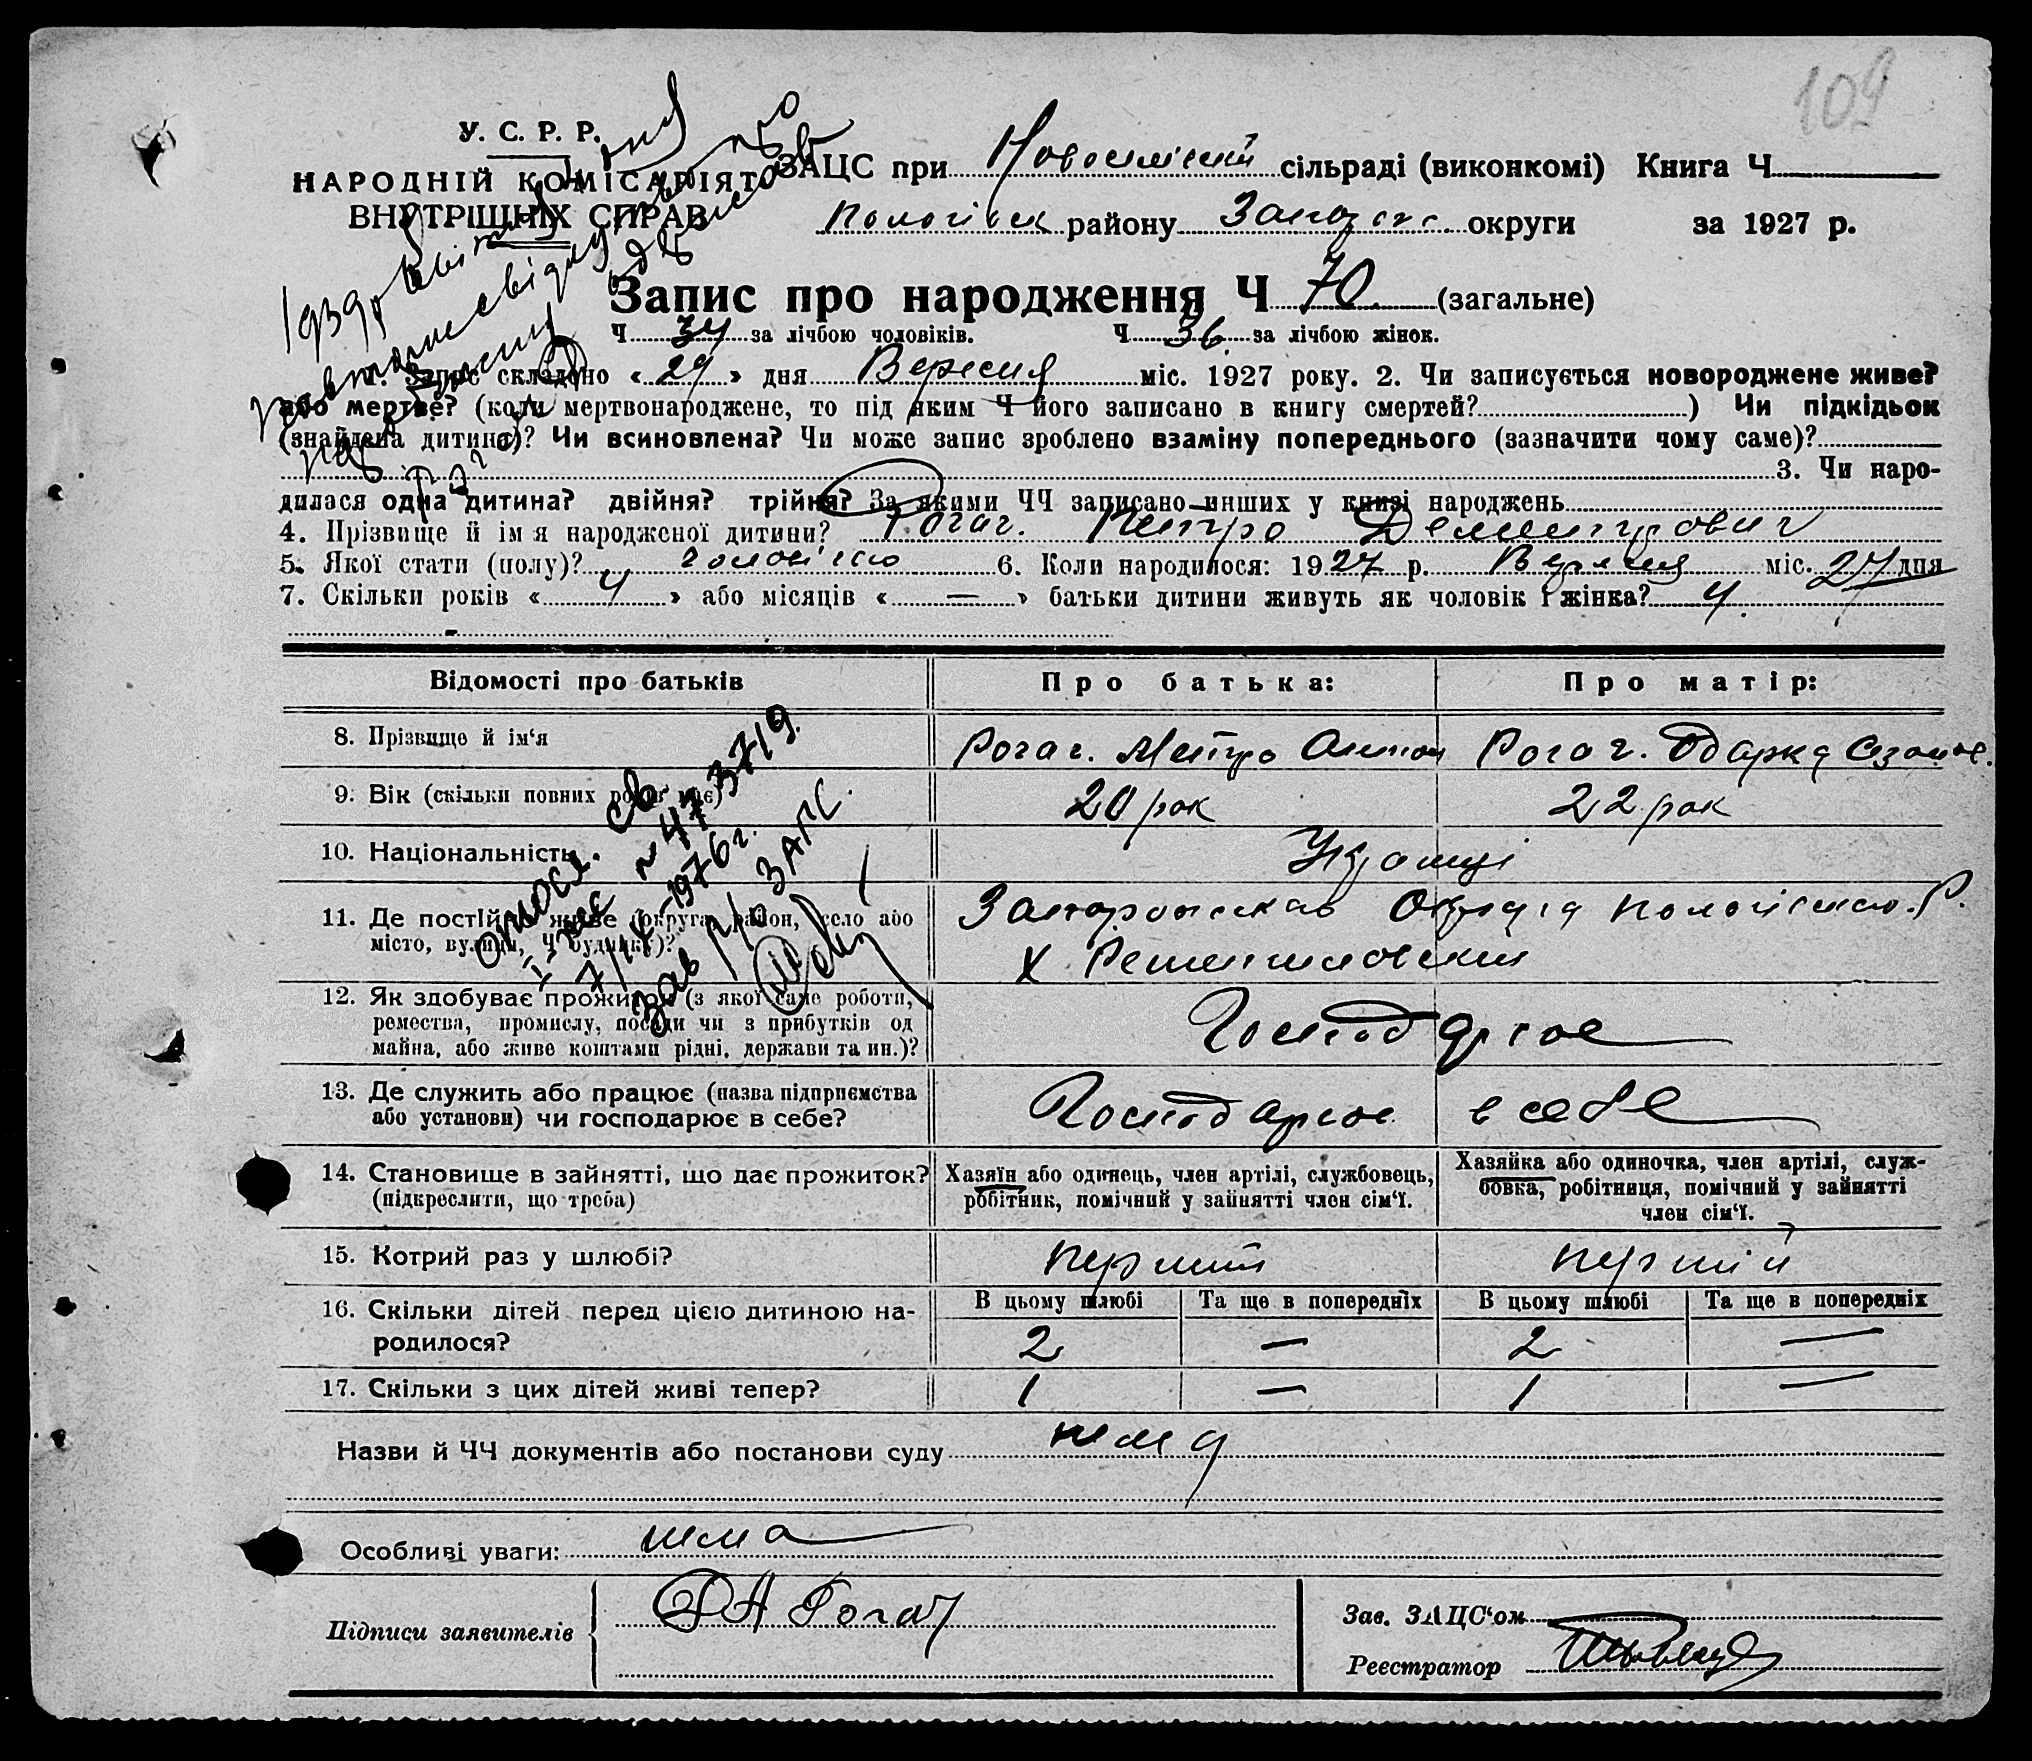 109
У. С. Р. Р.
НАРОДНІЙ КОМІСАРІЯТ
ВНУТРІШНІХ СПРАВ
ЗАЦС при сільраді (виконкомі) Книга Ч
Пологівськ району Запорізс округи за 1927 р.
Запис про народження Ч 70 (загальне)
Ч 34 за лічбою чоловіків. Ч 36 за лічбою жінок.
1. Запис складено « 29 » дня Вересня міс. 1927 року. 2. Чи записується новороджене живе?
або мертве? (коли мертвонароджене, то під яким Ч його записано в книгу смертей? ) Чи підкідьок
(знайдена дитина)? Чи всиновлена? Чи може запис зроблено взаміну попереднього (зазначити чому саме)?
3. Чи наро-
дилася одна дитина? двійня? трійня? За якими ЧЧ записано инших у книзі народжень
4. Прізвище й ім я народженої дитини? Рогач. Петро Демитрович
5. Якої стати (полу)? 6. Коли народилося: 1927 р. Вересня міс. 27 дня
7. Скільки років « 4 » або місяців « — » батьки дитини живуть як чоловік і жінка? 4.
Відомості про батьків
Про батька:
Про матір:
8. Прізвище й ім‘я
Рогач. Антон
Рогач. Одарка
9. Вік (скільки повних років має)
20 рок
22 рок
10. Національність
Українці
11. Де постійно живе (округа, район, село або
місто, вулиця, Ч будинку)?
Запорожская Округа Пологівсько. Р.
Х
12. Як здобуває прожиток (з якої саме роботи,
ремества, промислу, посади чи з прибутків од
майна, або живе коштами рідні, держави та ин.)?
Господарює
13. Де служить або працює (назва підприємства
або установи) чи господарює в себе?
Господарює в себе
14. Становище в зайнятті, що дає прожиток?
(підкреслити, що треба)
Хазяїн або одинець, член артілі, службовець,
робітник, помічний у зайнятті член сім‘ї.
Хазяйка або одиночка, член артілі, служ-
бовка, робітниця, помічний у зайнятті
член сім‘ї.
15. Котрий раз у шлюбі?
перший
перший
16. Скільки дітей перед цією дитиною на-
родилося?
В цьому шлюбі
Та ще в попередніх
В цьому шлюбі
Та ще в попередніх
2 — 2 —
17. Скільки з цих дітей живі тепер?
1 — 1 —
Назви й ЧЧ документів або постанови суду нема
Особливі уваги: нема
Підписи заявителів
Рогач
Зав. ЗАЦС‘ом
Реєстратор
св.
№ 473719.
7/IX-1976г.
Зав р/б ЗАГС.